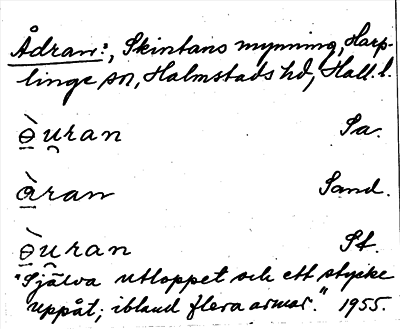 Ådran:, Skintans mynning, Harp-
linge sn, Halmstads hd, Hall. l.
ə̀u̯ran Sa.
àran Sand.
ə̀u̯ran St.
"Själva utloppet och ett stycke
uppåt; ibland flera armar." 1955.